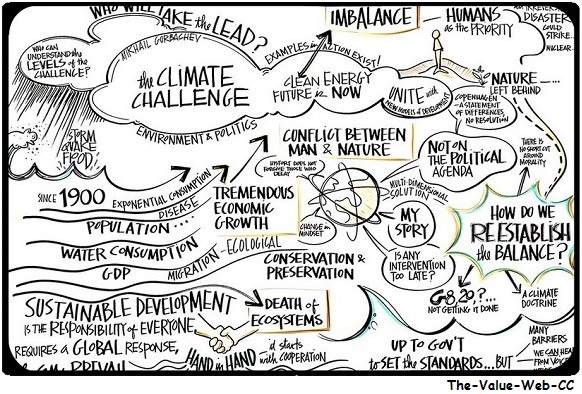 WHO WILL TAKE the LEAD?
WHO CAN
UNDERSTAND the
LEVELS of the
CHALLENGE?
MIKHAIL GORBACHEV
the CLIMATE
CHALLENGE
ENVIRONMENT & POLITICS
EXAMPLES in ACTION EXIST!
CLEAN ENERGY
FUTURE is NOW
IMBALANCE
HUMANS
as the PRIORITY
DISASTER
COULD
STRIKE...
NUCLEAR
the
NATURE...
LEFT BEHIND
UNITE with a
NEW MODEL of DEVELOPMENT
COPENHAGEN
- A STATEMENT
OF DIFFERENCES,
NO RESOLUTION
STORM
QUAKE
FLOOD
CONFLICT BETWEEN
MAN & NATURE
HISTORY DOES NOT
FORGIVE THOSE WHO
DELAY
NOT ON
THE POLITICAL
AGENDA
THERE IS
NO SHORT CUT
AROUND
MORALITY
SINCE 1900
EXPONENTIAL CONSUMPTION
DISEASE
POPULATION ....
WATER CONSUMPTION
GDP
MIGRATION - ECOLOGICAL
TREMENDOUS
ECONOMIC
GROWTH
CHANGE in
MINDSET
MULTI-DIMENSIONAL
SOLUTION
MY
STORY
IS ANY
INTERVENTION
TOO LATE?
HOW DO WE
RE ESTABLISH
the BALANCE?
CONSERVATION &
PRESERVATION
G8, 20,?...
NOT GETTING IT DONE
A CLIMATE
DOCTRINE
SUSTAINABLE DEVELOPMENT
IS the RESPONSIBILITY of EVERYONE,
REQUIRES a GLOBAL RESPONSE,
PREVAIL
DEATH of
ECOSYSTEMS
HAND in HAND
it starts
with COOPERATION
UP TO GOV'T
to SET the STANDARDS...BUT
MANY
BARRIERS
WE CAN HEAR
FROM VOICE
The-Value-Web-CC